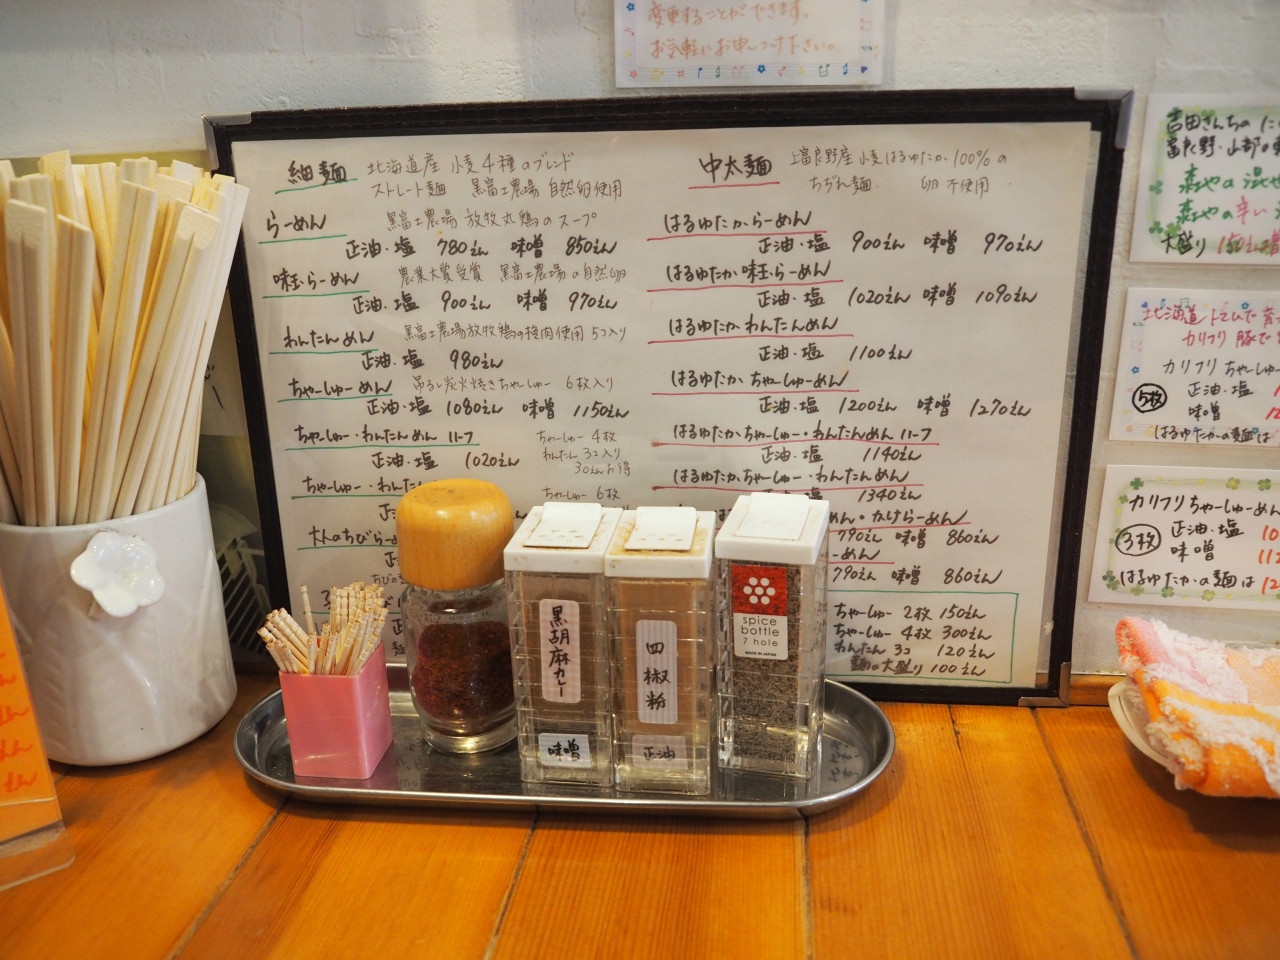 変更することができます。
お気軽にお申しつけ下さい。
細麺 北海道産 小麦4種のブレンド
ストレート麺 黒富士農場 自然卵使用
らーめん 黒富士農場 放牧丸鶏のスープ
正油・塩 780えん 味噌 850えん
味玉らーめん 農業大賞受賞 黒富士農場の自然卵
正油・塩 900えん 味噌 970えん
わんたんめん 黒富士農場放牧鶏の挽肉使用 5コ入り
正油・塩 980えん
ちゃーしゅーめん 吊るし炭火焼きちゃーしゅー 6枚入り
正油・塩 1080えん 味噌 1150えん
ちゃーしゅー・わんたんめん ハーフ ちゃーしゅー 4枚
わんたん 3コ入り
正油・塩 1020えん 30えんお得
ちゃーしゅー・わんたん ちゃーしゅー 6枚
大人のちびらー
中太麺 上富良野産 小麦はるゆたか 100%の
ちぢれ麺 卵不使用
はるゆたからーめん
正油・塩 900えん 味噌 970えん
はるゆたか味玉らーめん
正油・塩 1020えん 味噌 1090えん
はるゆたかわんたんめん
正油・塩 1100えん
はるゆたかちゃーしゅーめん
正油・塩 1200えん 味噌 1270えん
はるゆたかちゃーしゅー・わんたんめん ハーフ
正油・塩 1140えん
はるゆたかちゃーしゅー・わんたんめん
塩 1340えん
めん・かけらーめん
790えん 味噌 860えん
ーめん
790えん 味噌 860えん
ちゃーしゅー 2枚 150えん
ちゃーしゅー 4枚 300えん
わんたん 3コ 120えん
麺の大盛り 100えん
黒胡麻カレー
味噌
四椒粉
正油
spice
bottle
7 hole
MADE IN JAPAN
吉田さんちの
富良野・山部の
森やの混ぜ
森やの辛い
大盛り 150えん増
北海道
カリフリ 豚で
カリフリ ちゃーしゅー
5枚 正油・塩
味噌
はるゆたかの麺は
カリフリちゃーしゅーめん
3枚 正油・塩 10
味噌 112
はるゆたかの麺は 12